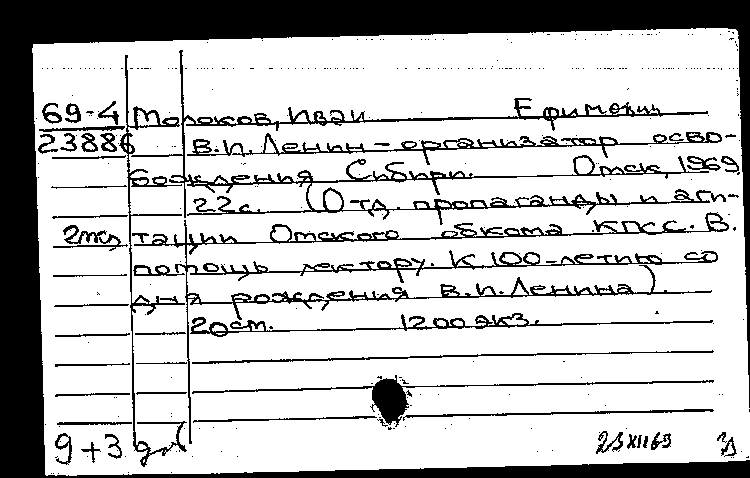 69-4 Молоков, Иван Ефимович
23886 В.И. Ленин - организатор осво-
бождения Сибири. Омск, 1969
22с. (Отд. пропаганды и аги-
2тж) тации Омского обкома КПСС. В.
помощь лектору. К 100-летию со
дня рождения В.И. Ленина).
20ст. 1200 экз.
9+3
23 XII 69